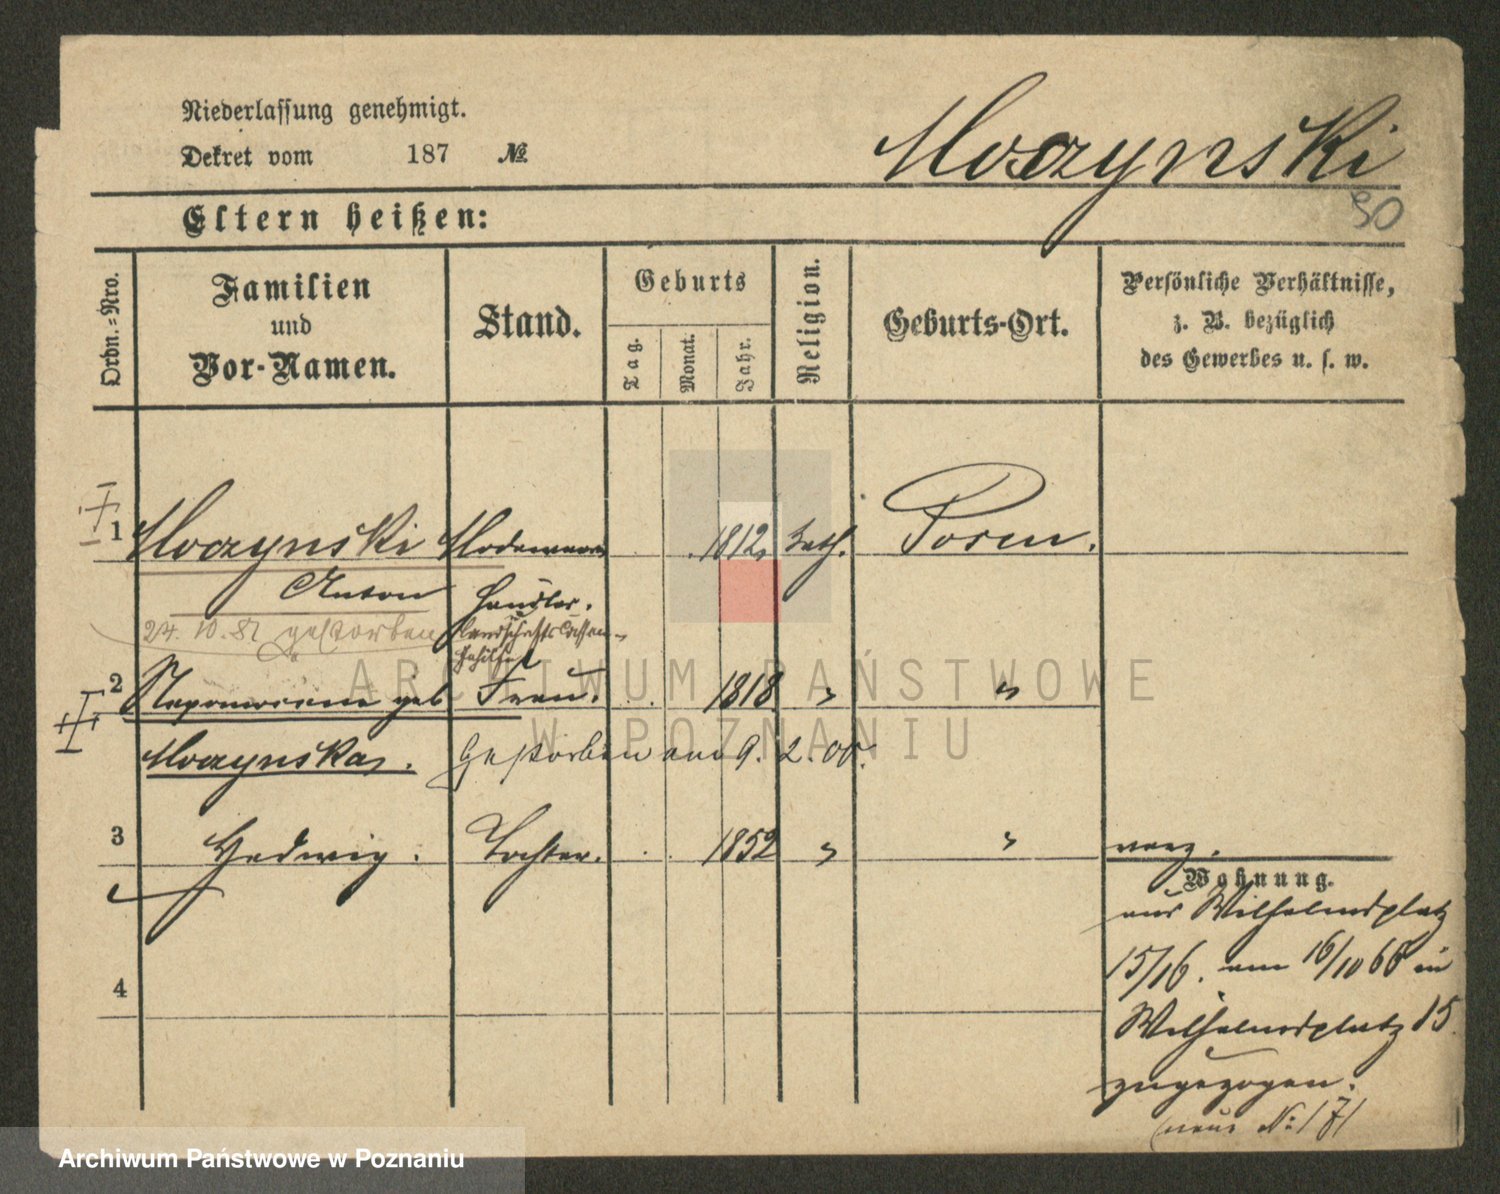 Niederlassung genehmigt.
Dekret vom 187 №
Moczynski
50
Eltern heißen:
Ordn.=Nro.
Familien
und
Vor-Namen.
Stand.
Geburts
Tag.
Monat.
Jahr.
Religion.
Geburts-Ort.
Persönliche Verhältnisse,
z. B. bezüglich
des Gewerbes u. s. w.
1 Moczynski Modewaaren 1812. kath. Posen.
Anton Händler.
24. 10. 87 gestorben Landschafts
2 Nepomucena geb Frau. 1818 " "
Moczynska. Gestorben am 9. 2. 00.
3 Hedwig. Tochter. 1852 " " verz.
Wohnung.
aus Wilhelmsplatz
15/16. am 16/10 66 in
4
Wilhelmsplatz 15
zugezogen.
(neue №: 17)
ARCHIWUM PAŃSTWOWE
W POZNANIU
Archiwum Państwowe w Poznaniu